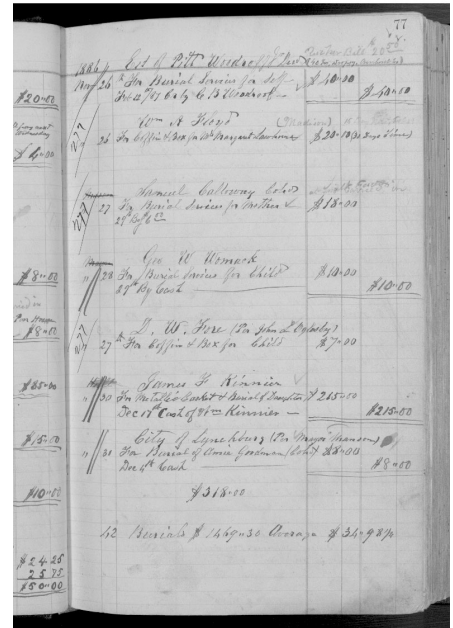 77
1886 Est of Pitt Woodroof Decd
Nov 26 For Burial Services for Self $40.00
By C B Woodroof $40.00
Wm A Floyd (Madison)
277
26 For Coffin & Box for Margaret $20.00
Samuel Calloway Cold
277
27 For Burial Services for Mother & $18.00
29th By
Geo W Womack
" 28 For Burial Services for Child $10.00
29th By Cash $10.00
D. W. Fore (Per John L Oglesby)
277
" 27th For Coffin & Box for Child $7.00
James F Kinnier
" 30 For Metallic Casket & Burial of Daughter $215.00
Dec 17th Cash of Wm Kinnier $215.00
City of Lynchburg (Per Mayor Manson)
" 30 For Burial of Annie Goodman (Cold) $8.00
Dec 4th Cash $8.00
$318.00
42 Burials $1469.30 Average $34.98
$20.00
$8.00
Per House
$8.00
$85.00
$15.00
$10.00
$24.25
25.75
$50.00